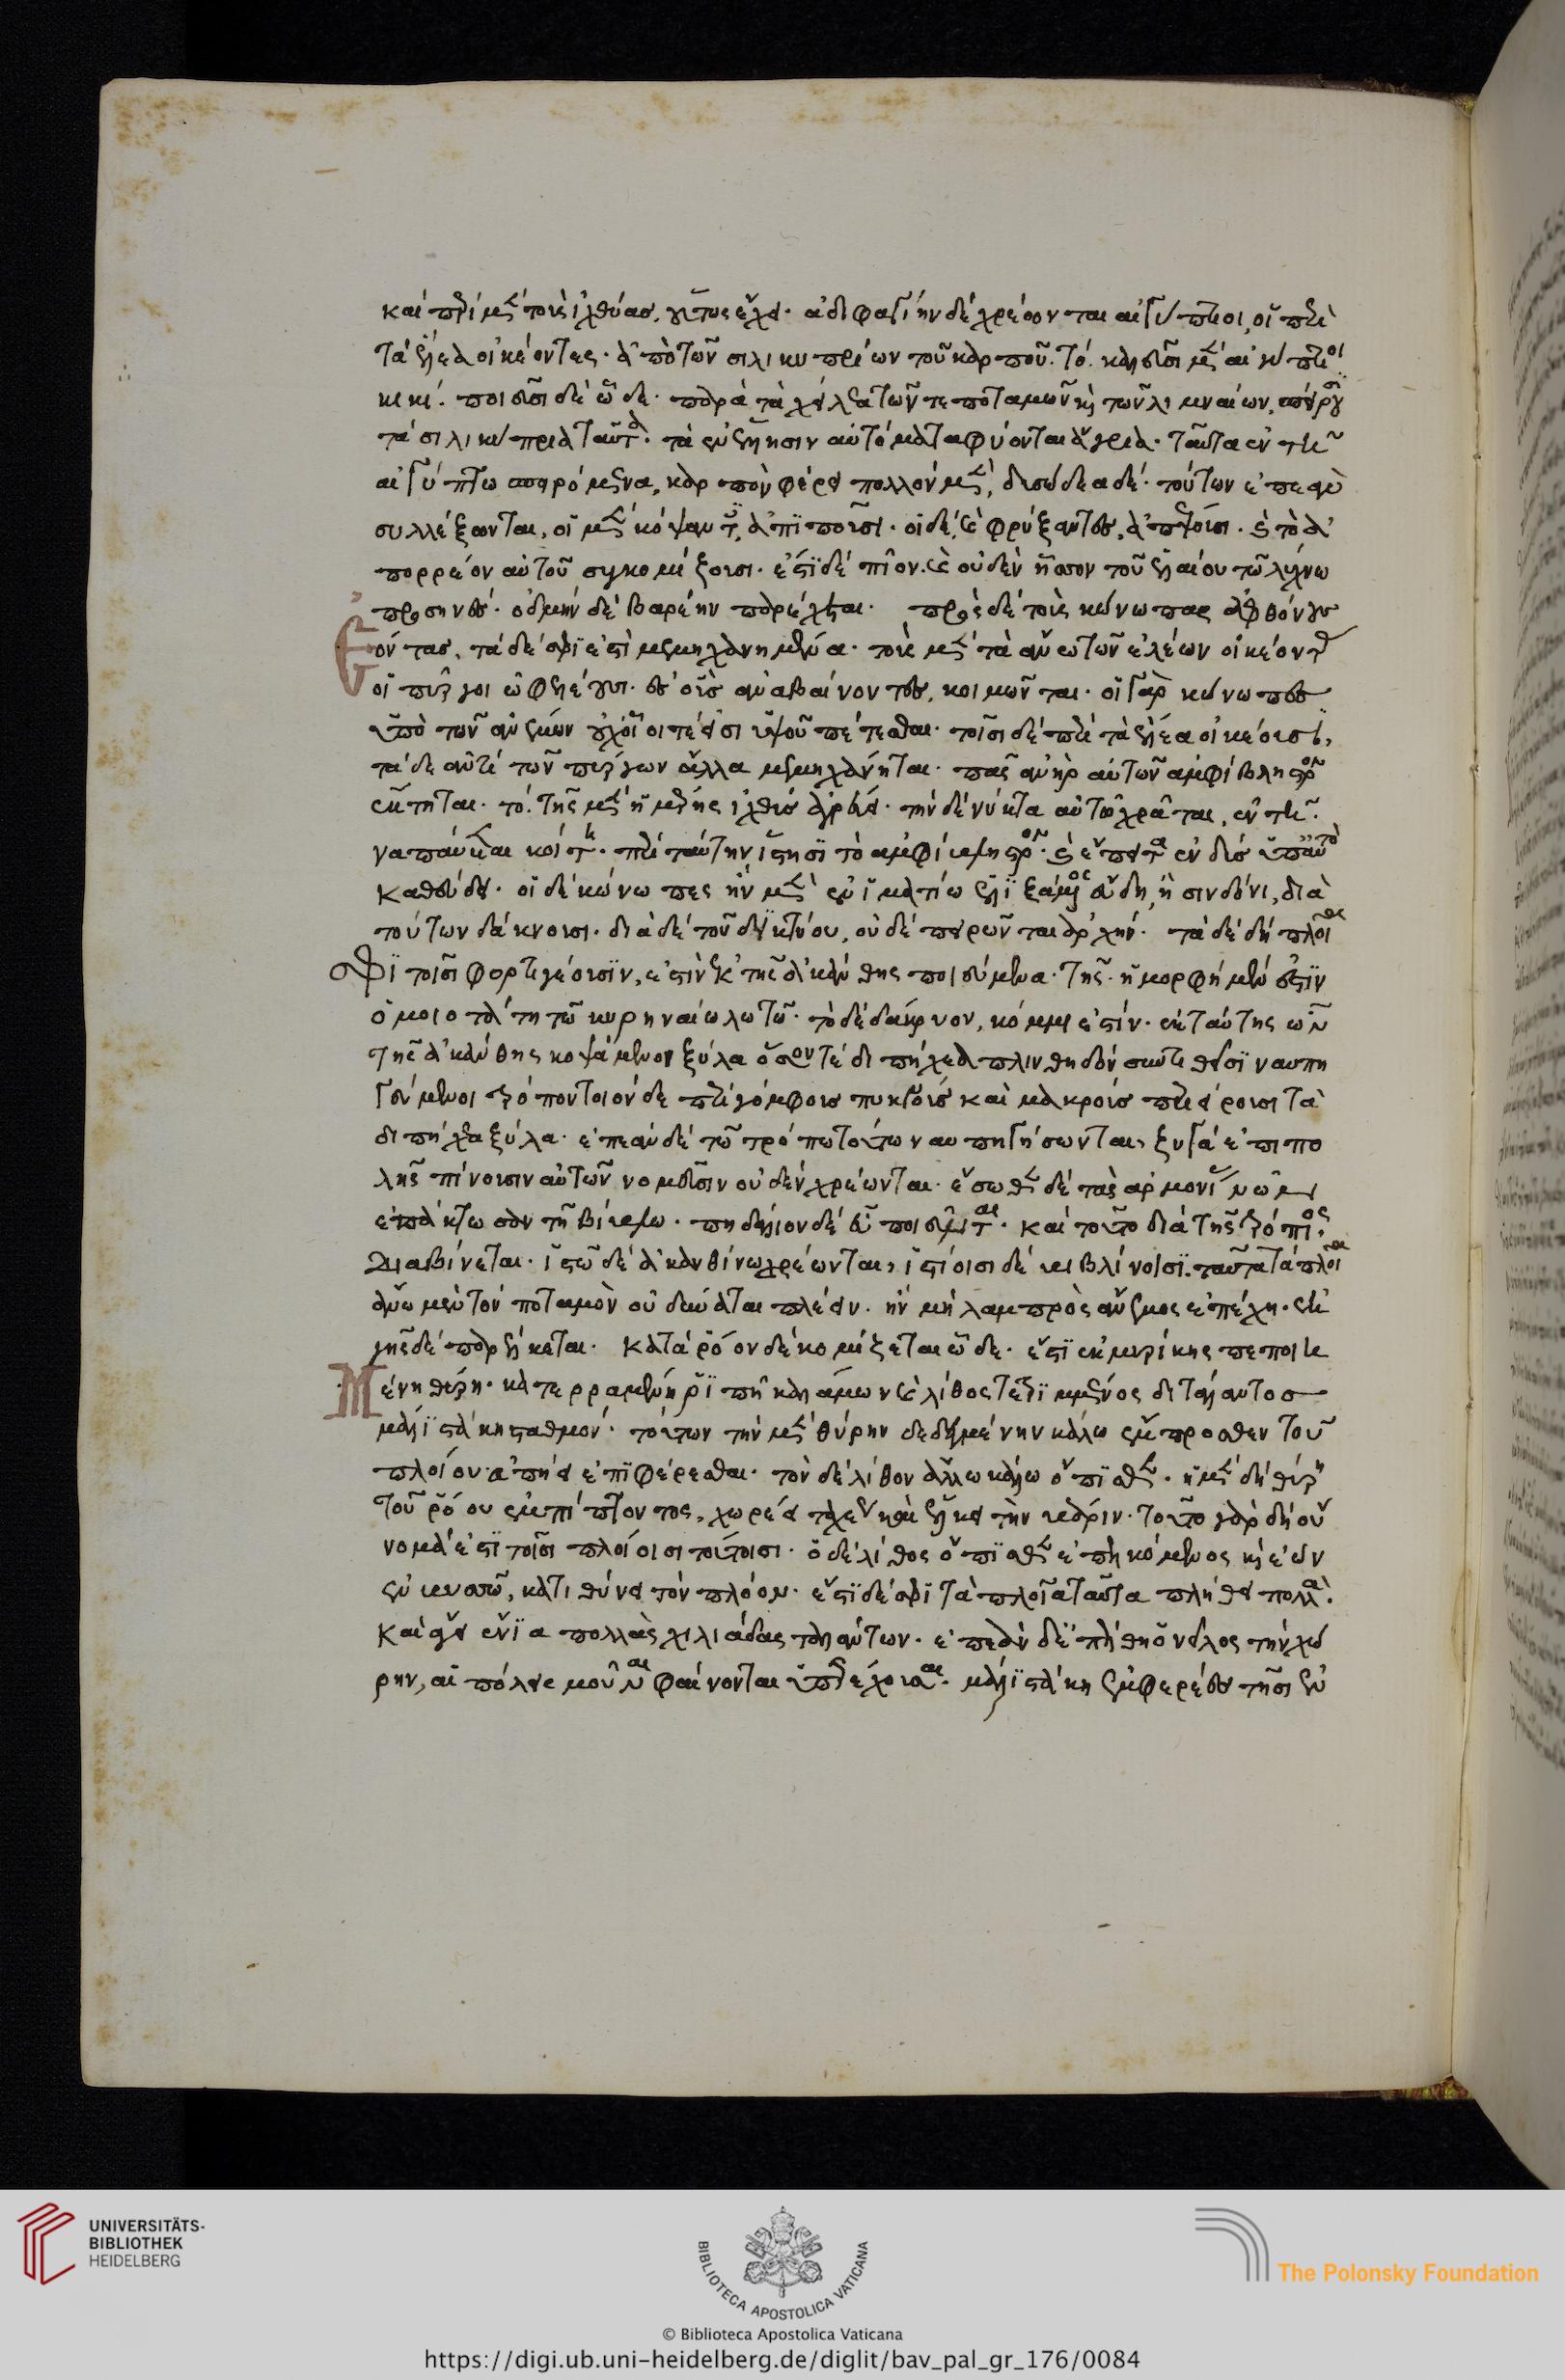 καὶ περὶ μὲν τοὺς ἰχθύας, οὕτως ἔχει. ἀλιφατίην δὲ χρέονται αἰγύπτιοι, οἱ περὶ
τὰ ἕλεα οἰκέοντες. ἀπὸ τῶν σιλικυπρίων τοῦ καρποῦ. τὸ καλεῦσι μὲν αἰγύπτιοι
κίκι. ποιεῦσι δὲ ὧδε. παρὰ τὰ χείλεα τῶν τε ποταμῶν καὶ τῶν λιμναίων, σπείρουσι
τὰ σιλικύπρια ταῦτα. τὰ ἐν ἕλλησιν αὐτόματα φύονται ἄγρια. ταῦτα ἐν τῇ
αἰγύπτω σπειρόμενα, καρπὸν φέρει πολλὸν μὲν, δυσώδεα δέ. τοῦτον ἐπεὰν
συλλέξωνται, οἱ μὲν κόψαντες, ἀπιποῦσι. οἱ δὲ, καὶ φρύξαντες, ἀπέψουσι. καὶ τὸ ἀ
πορρέον αὐτοῦ συγκομίζουσι. ἔστι δὲ πῖον. καὶ οὐδὲν ἧσσον τοῦ ἐλαίου τῶ λύχνω
προσηνές. ὀδμὴν δὲ βαρέην παρέχεται. πρὸς δὲ τοὺς κώνωπας ἀφθόνους
ἐόντας, τάδε σφί ἐστι μεμηχανημένα. τοὺς μὲν τὰ ἄνω τῶν ἑλέων οἰκέοντας
οἱ πύργοι ὠφελέουσι. ἐς οὓς ἀναβαίνοντες, κοιμῶνται. οἱ γὰρ κώνωπες
ὑπὸ τῶν ἀνέμων οὐχ οἷοι τέ εἰσι ὑψοῦ πέτεσθαι. τοῖσι δὲ περὶ τὰ ἕλεα οἰκέουσι,
τάδε ἀντὶ τῶν πύργων ἄλλα μεμηχάνηται. πᾶς ἀνὴρ αὐτῶν ἀμφίβληστρον
ἔκτηται. τὸ τῆς μὲν ἡμέρης ἰχθῦς ἀγρεύει. τὴν δὲ νύκτα αὐτῶ χρᾶται, ἐν τῇ
ἀναπαύεται κοίτη. περὶ ταύτην ἵστησι τὸ ἀμφίβληστρον. καὶ ἔπειτα ἐνδὺς ὑπ' αὐτὸ
καθεύδει. οἱ δὲ κώνωπες ἢν μὲν ἐν ἱματίω ἐνειλιξάμενος εὕδη, ἢ σινδόνι, διὰ
τούτων δάκνουσι. διὰ δὲ τοῦ δικτύου, οὐδὲ πειρῶνται ἀρχήν. τὰ δὲ δὴ πλοῖα
σφι τοῖσι φορτηγέουσιν, ἐστὶν ἐκ τῆς ἀκάνθης ποιεύμενα. τῆς ἡ μορφὴ μέν ἐστιν
ὁμοιοτάτη τῶ κυρηναίω λωτῶ. τὸ δὲ δάκρυον, κόμμι ἐστίν. ἐκ ταύτης ὦν
τῆς ἀκάνθης κοψάμενοι ξύλα ὅσον τε διπήχεα πλινθηδὸν συντιθεῖσι ναυπη
γεύμενοι τρόπον τοιόνδε περὶ γόμφους πυκνοὺς καὶ μακροὺς περιείρουσι τὰ
διπήχεα ξύλα. ἐπεὰν δὲ τῶ τρόπω τούτω ναυπηγήσωνται, ζυγὰ ἐπιπο
λῆς τείνουσιν αὐτῶν νομεῦσιν οὐδὲν χρέωνται. ἔσωθεν δὲ τὰς ἁρμονίας ὦν
ἐπάκτωσαν τῆ βύβλω. πηδάλιον δὲ ἓν ποιεῦνται. καὶ τοῦτο διὰ τῆς τρόπιος
διαβύνεται. ἱστῶ δὲ ἀκανθίνω χρέωνται, ἱστίοισι δὲ βυβλίνοισι. ταῦτα τὰ πλοῖα
ἄνω μὲν τὸν ποταμὸν οὐ δύναται πλέειν. ἢν μὴ λαμπρὸς ἄνεμος ἐπέχη. ἐκ
γῆς δὲ παρέλκεται. κατὰ ῥόον δὲ κομίζεται ὧδε. ἔστι ἐκ μυρίκης πεποιη
μένη θύρη. κατερραμμένη ῥιπὶ καλάμων καὶ λίθος τετρημένος διτάλαντος
μάλιστά κη σταθμόν. τούτων τὴν μὲν θύρην δεδεμένην κάλω ἔμπροσθεν τοῦ
πλοίου ἀπίει ἐπιφέρεσθαι. τὸν δὲ λίθον ἄλλω κάλω ὄπισθεν. ἡ μὲν δὴ θύρη
τοῦ ῥόου ἐμπίπτοντος, χωρέει ταχέως καὶ ἕλκει τὴν βᾶριν. τοῦτο γὰρ δὴ οὔ
νομά ἐστι τοῖσι πλοίοισι τούτοισι. ὁ δὲ λίθος ὄπισθεν ἐπελκόμενος καὶ ἐὼν
ἐν βυσσῶ, κατιθύνει τὸν πλόον. ἔστι δέ σφι τὰ πλοῖα ταῦτα πλήθει πολλά.
καὶ ἄγει ἔνια πολλὰς χιλιάδας ταλάντων. ἐπεὰν δὲ ἐπέλθη ὁ νεῖλος τὴν χώ
ρην, αἱ πόλιες μοῦναι φαίνονται ὑπερέχουσαι. μάλιστά κη ἐμφερέες τῆσι ἐν
UNIVERSITÄTS-
BIBLIOTHEK
HEIDELBERG
BIBLIOTECA APOSTOLICA VATICANA
The Polonsky Foundation
© Biblioteca Apostolica Vaticana
https://digi.ub.uni-heidelberg.de/diglit/bav_pal_gr_176/0084